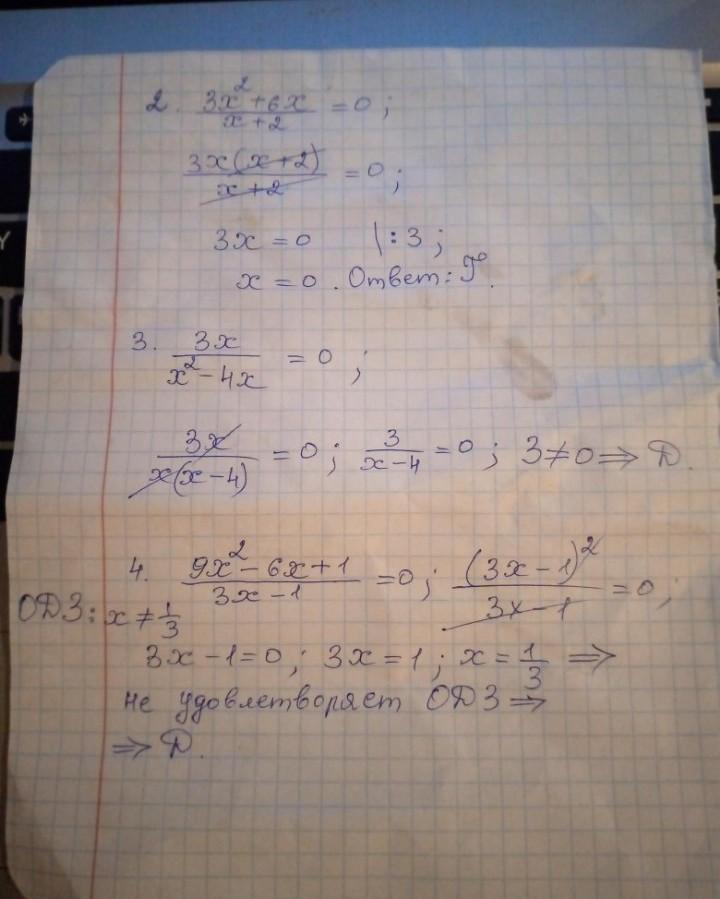 2. (3x² + 6x)/(x + 2) = 0 ;
3x(x + 2)/(x + 2) = 0 ;
3x = 0 | : 3 ;
x = 0 . Ответ: Г.
3. 3x/(x² - 4x) = 0 ;
3x/(x(x - 4)) = 0 ; 3/(x - 4) = 0 ; 3 ≠ 0 ⇒ Д.
4. (9x² - 6x + 1)/(3x - 1) = 0 ; (3x - 1)²/(3x - 1) = 0 ;
ОДЗ: x ≠ 1/3
3x - 1 = 0 ; 3x = 1 ; x = 1/3 ⇒
не удовлетворяет ОДЗ ⇒
⇒ Д.